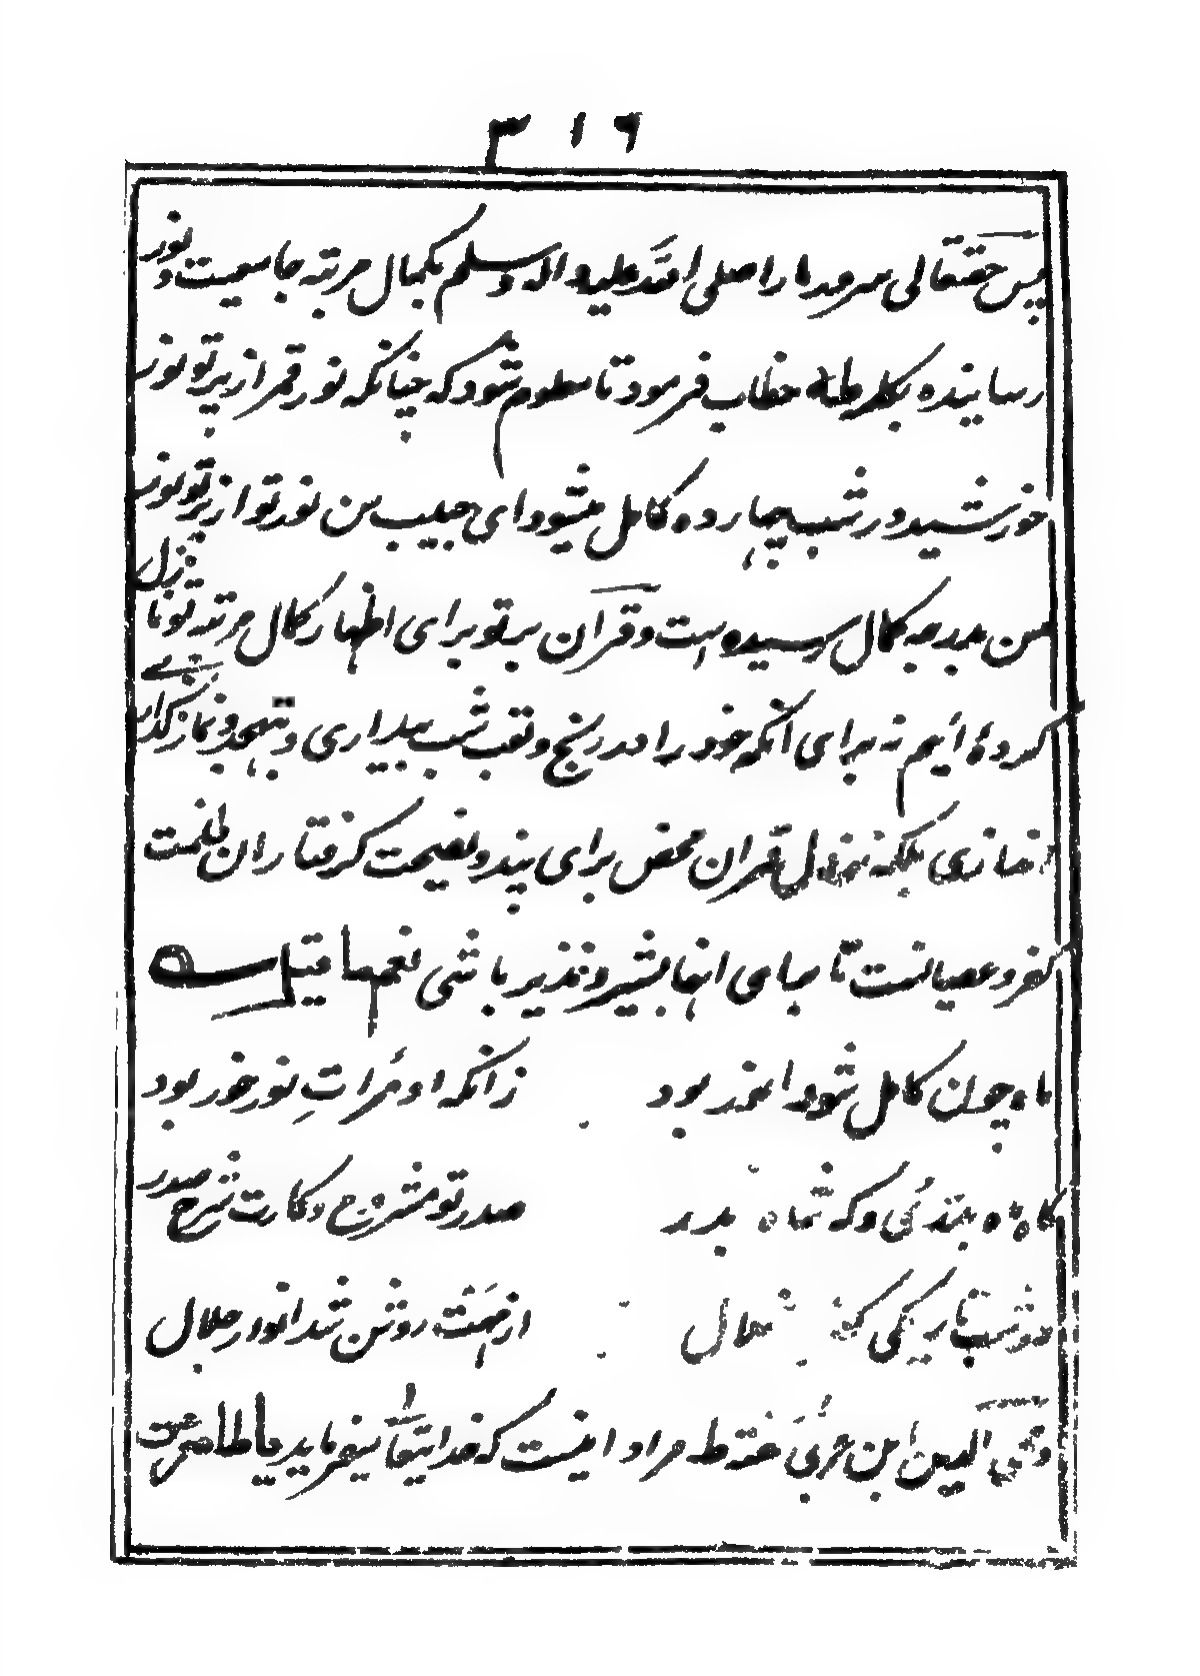 ۳۱۶
پس حقتعالی سرمدا را صلی الله علیه واله وسلم بکمال مرتبه جامعیت و نور
رسانیده بکلمه طه خطاب فرمود تا معلوم شود که چنانکه نور قمر از پرتو نور
خورشید در شب چهارده کامل میشود ای حبیب من نور تو از پرتو نور
من بدرجه کمال رسیده است و قران بر تو برای اظهار کمال مرتبه تو نازل
کردهٔ ایم نه برای آنکه خود را در رنج و تعب شب بیداری و تهجد و نماز گذاری
اندازی بلکه نزول قران محض برای پند و نصیحت گرفتاران ظلمت
کفر و عصیانست تا بجای انها بشیر و نذیر باشی نعم ما قیل
ماه چون کامل شود انور بود
زانکه او مرات نور خور بود
گاه بدر
صدر تو مشروح و کارت شرح صدر
شب تاریکی
از مهت روشن شد انوار جلال
و محی الدین ابن عربی طه مراد اینست که خدایتعا میفرماید یا طاهر